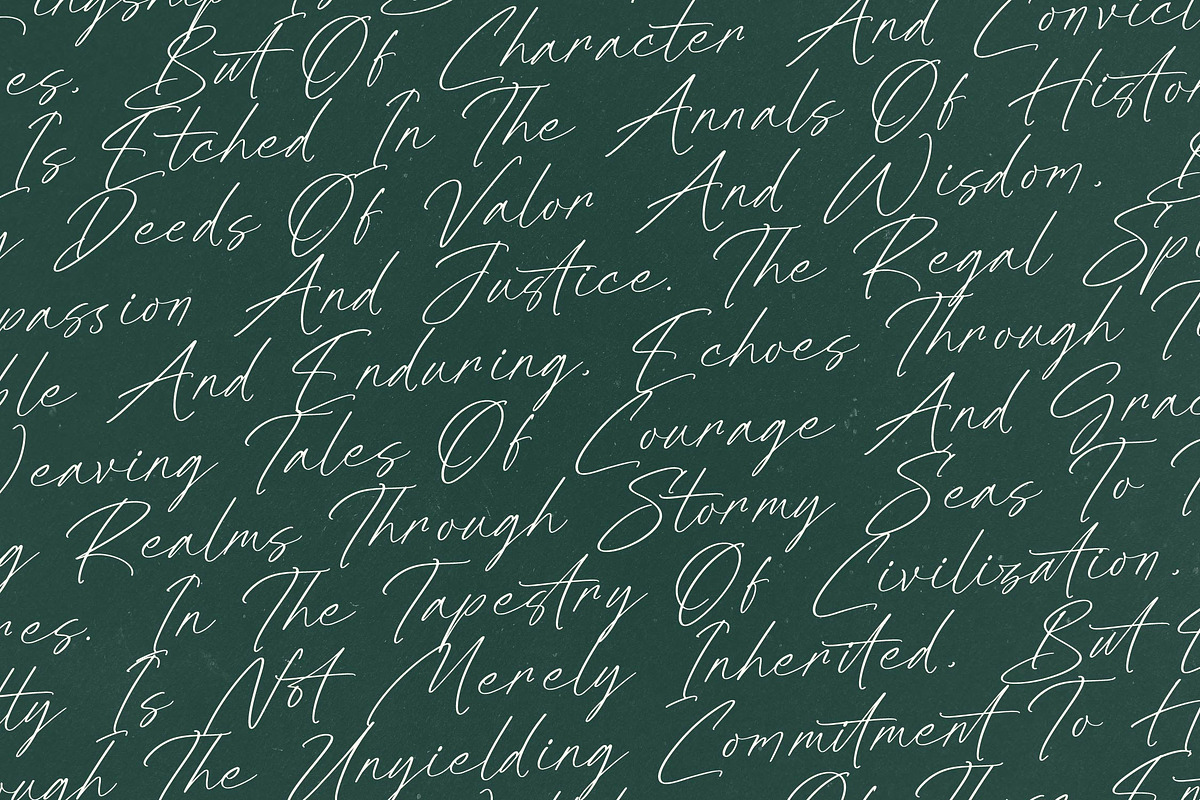 es, But Of Character And Convict
Is Etched In The Annals Of Histor
Deeds Of Valor And Wisdom,
passion And Justice. The Regal Sp
ble And Enduring, Echoes Through T
eaving Tales Of Courage And Grac
g Realms Through Stormy Seas To
res. In The Tapestry Of Civilization,
ty Is Not Merely Inherited, But E
ough The Unyielding Commitment To H